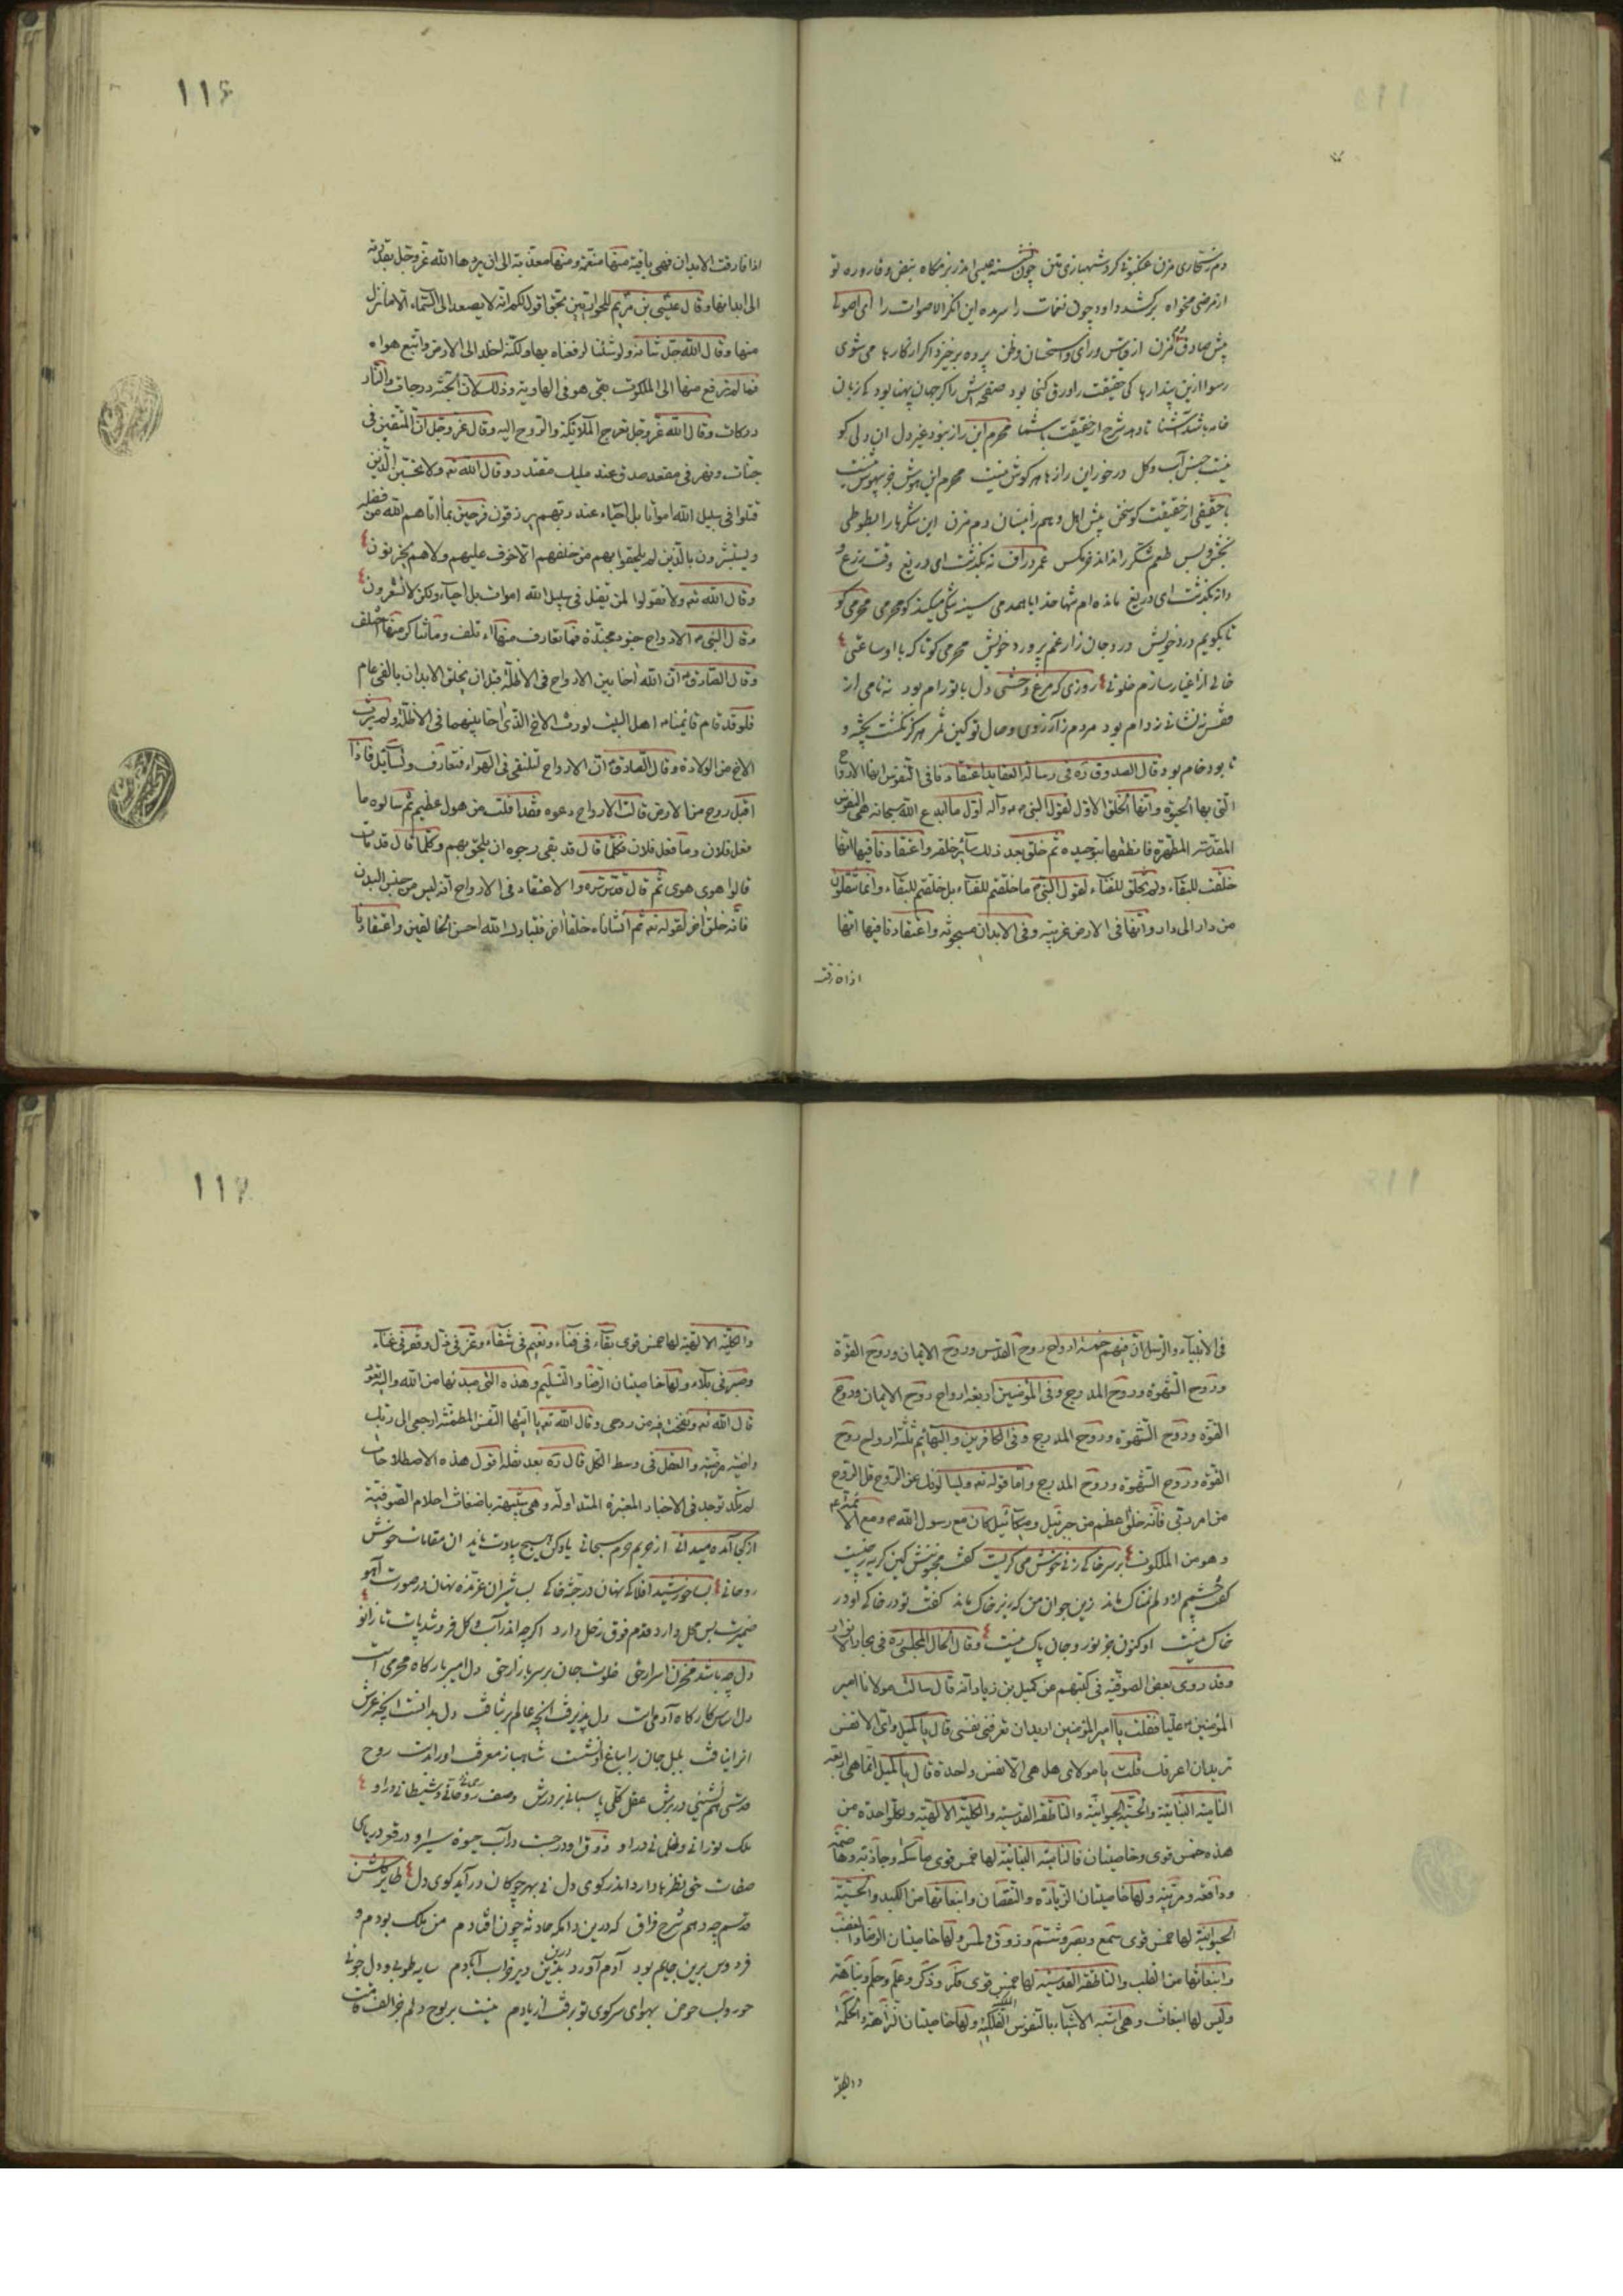 دم رستکاری مزن عنکبوتی کرد شهبازی تنی چون نشسته عیسی اندر بزمکاه نبض وقاروره تو
از مرضی مخواه برکشد داود چون نغمات را سرمده این انکر الاصوات را ای اصولی
پیش صادق کم زن از قیاس ورای واستحسان وظن پرده برخیزد اکر از کارها می شوی
رسوا ازین پندارها کی حقیقت را ورق کنجا بود صفحه اش را کر جهان پهنا بود کی زبان
خامه باشد آشنا تا دهد شرح از حقیقت با شما محرم این راز نبود غیر دل آن دلی کو
نیست جنس آب وکل درخور این رازها هر کوش نیست محرم این هوش جز بیهوش نیست
با حقیقی از حقیقت کو سخن پیش اهل وهم زایشان دم مزن این شکرها را بطوطی
بخش وبس طعم شکر را نداند خرمکس عمر دراف نه بکذشت ای دریغ وقت مزرع و
دانه بکذشت ای دریغ مانده ام تنها خدایا همدمی سینه تنکی میکند کو محرمی محرمی کو
تا بکویم درد خویش درد جان زار غم پرورد خویش محرمی کو تا که با او ساعتی
خالی از اغیار سازم خلوتی روزی که مرغ وحشی دل با تو رام بود نه نامی از
قفس نه نشانی ز دام بود مردم ز آرزوی وصال تو کین ثمر هرکز نکشت پخته و
تا بود خام بود قال الصدوق ره فی رسالة العقاید اعتقادنا فی النفوس انها الارواح
التی بها الحیوة وانها الخلق الاول لقول النبی ص وآله اول ما ابدع الله سبحانه هی النفوس
المقدسة المطهرة فانطقها بتوحیده ثم خلق بعد ذلک سائر خلقه واعتقادنا فیها انها
خلقت للبقاء ولم تخلق للفناء لقول النبی ص ما خلقتم للفناء بل خلقتم للبقاء وانما تنقلون
من دار الی دار وانها فی الارض غریبة وفی الابدان مسجونة واعتقادنا فیها انها
اذا فارقت
116
اذا فارقت الابدان فهی باقیة منها منعمة ومنها معذبة الی ان یردها الله عز وجل بقدرته
الی ابدانها وقال عیسی بن مریم للحواریین بحق اقول لکم انه لا یصعد الی السماء الا ما نزل
منها وقال الله جل ثناؤه ولو شئنا لرفعناه بها ولکنه اخلد الی الارض واتبع هواه
فما لم ترفع منها الی الملکوت بقی هو فی الهاویة وذلک لان الجنة درجات والنار
درکات وقال الله عز وجل تعرج الملائکة والروح الیه وقال عز وجل ان المتقین فی
جنات ونهر فی مقعد صدق عند ملیک مقتدر وقال الله تع ولا تحسبن الذین
قتلوا فی سبیل الله امواتا بل احیاء عند ربهم یرزقون فرحین بما آتاهم الله من فضله
ویستبشرون بالذین لم یلحقوا بهم من خلفهم الا خوف علیهم ولا هم یحزنون
وقال الله تع ولا تقولوا لمن یقتل فی سبیل الله اموات بل احیاء ولکن لا تشعرون
وقال النبی ص الارواح جنود مجندة فما تعارف منها ائتلف وما تناکر منها اختلف
وقال الصادق ع ان الله آخا بین الارواح فی الاظلة قبل ان یخلق الابدان بالفی عام
فلو قد قام قائمنا اهل البیت لورث الاخ الذی آخا بینهما فی الاظلة ولم یرث
الاخ من الولادة وقال الصادق ع ان الارواح لتلتقی فی الهواء فتتعارف وتسائل فاذا
اقبل روح من الارض قالت الارواح دعوه فقد افلت من هول عظیم ثم سالوه ما
فعل فلان وما فعل فلان فکلما قال قد بقی رجوه ان یلحق بهم وکلما قال قد مات
قالوا هوی هوی ثم قال قدس سره والاعتقاد فی الارواح انه لیس من جنس البدن
فانه خلق آخر لقوله تع ثم انشاناه خلقا آخر فتبارک الله احسن الخالقین واعتقادنا
فی الانبیاء والرسل ان فیهم خمسة ارواح روح القدس وروح الایمان وروح القوة
وروح الشهوة وروح المدرج وفی المؤمنین اربعة ارواح روح الایمان وروح
القوة وروح الشهوة وروح المدرج وفی الکافرین والبهائم ثلثة ارواح روح
القوة وروح الشهوة وروح المدرج واما قوله تع ویسالونک عن الروح قل الروح
من امر ربی فانه خلق اعظم من جبرئیل ومیکائیل کان مع رسول الله ص ومع الائمة ع
وهو من الملکوت برسر خاکی زنی خوش می کریست کفت مجنونش کین کریه ز چیست
کفت چشمم از دلم نمناک ماند زین جوان من که زیر خاک ماند کفت تو در خاکی او در
خاک نیست او کنون جز نور وجان پاک نیست وقال الخال المجلسی ره فی بحار الانوار
وقد روی بعض الصوفیة فی کتبهم عن کمیل بن زیاد انه قال سالت مولانا امیر
المؤمنین علیا فقلت یا امیر المؤمنین ارید ان تعرفنی نفسی قال یا کمیل وای الانفس
ترید ان اعرفک قلت یا مولای هل هی الا نفس واحدة قال یا کمیل انما هی اربعة
النامیة النباتیة والحسیة الحیوانیة والناطقة القدسیة والکلیة الالهیة ولکل واحدة من
هذه خمس قوی وخاصیتان فالنامیة النباتیة لها خمس قوی ماسکة وجاذبة وهاضمة
ودافعة ومربیة ولها خاصیتان الزیادة والنقصان وانبعاثها من الکبد والحسیة
الحیوانیة لها خمس قوی سمع وبصر وشم وذوق ولمس ولها خاصیتان الرضا والغضب
وانبعاثها من القلب والناطقة القدسیة لها خمس قوی فکر وذکر وعلم وحلم ونباهة
ولیس لها انبعاث وهی اشبه الاشیاء بالنفوس الفلکیة الملکیة ولها خاصیتان النزاهة والحکمة
والکلیة
117
والکلیة الالهیة لها خمس قوی بقاء فی فناء ونعیم فی شقاء وعز فی ذل وفقر فی غناء
وصبر فی بلاء ولها خاصیتان الرضا والتسلیم وهذه التی مبدئها من الله والیه تعود
قال الله تع ونفخت فیه من روحی وقال الله تع یا ایتها النفس المطمئنة ارجعی الی ربک
راضیة مرضیة والعقل فی وسط الکل قال ره بعد نقله اقول هذه الاصطلاحات
لم تکد توجد فی الاخبار المعتبرة المتداولة وهی شبیهة باضغاث احلام الصوفیة
از کجا آمده میدانی از حریم حرم سبحانی یاد کن هیچ بیادت ناید ان مقامات خوش
روحانی بسا خورشید افلاکی نهان در جثه خاکی بسا شیران غرنده نهان در صورت آهو
ضمیرت بس محل دارد قدم فوق زحل دارد اکرچه اندر آب وکل فروشد پات تا زانو
دل چه باشد مخزن اسرار حق خلوت جان بر سر بازار حق دل امیر بارکاه محرمی است
دل اساس کارکاه آدمی است دل پذیرفت آنچه عالم برنتافت دل بدانست آنچه عرش
انرا نیافت بلبل جان را بباغ او نشست شاهباز معرفت او را بدست روح
قدسی هم نشینی در برش عقل کلی پاسبانی بر درش وصف روحانی وشیطانی در او
ملک نورانی وظلمانی در او ذوق او درجست وآب حیوة سیر او در قعر دریای
صفات حق نظرها دارد اندر کوی دل نی بهر چوکان درآید کوی دل طایر کلشن
قدسم چه دهم شرح فراق که درین دامکه حادثه چون افتادم من ملک بودم و
فردوس برین جایم بود آدم آورد درین دیر خراب آبادم سایه طوبی ودل جوئی
حور ولب حوض بهوای سر کوی تو برفت از یادم نیست بر لوح دلم جز الف قامت